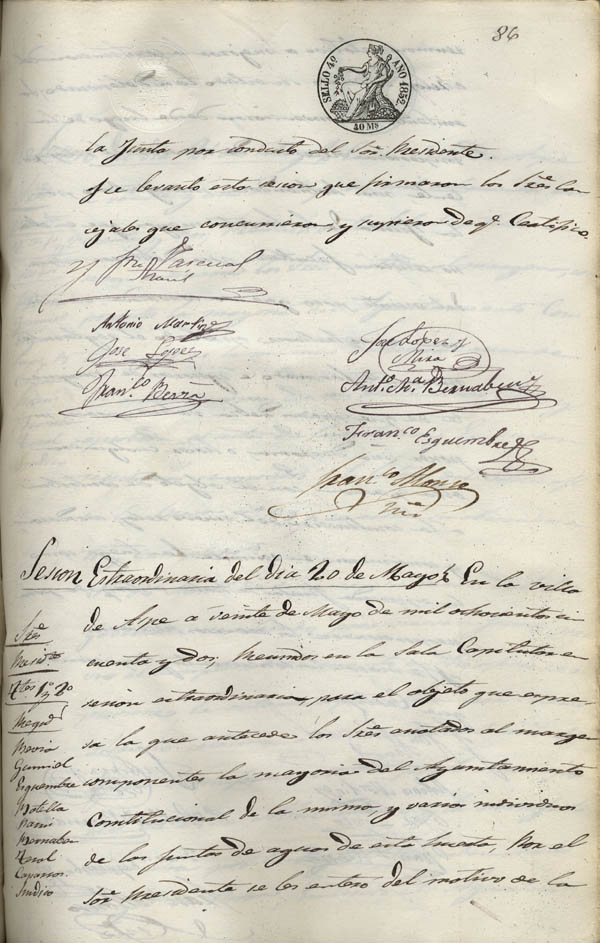 86
SELLO 4º AÑO 1852
40 Ms
la Junta por conducto del Sor. Presidente.
y se levanto esta sesion que firmaron los Sres. Con
cejales que concurrieron, y supieron de q.e Certifico.
Pascual
Antonio Martinez
Jose Lopez
Jose Lopez y
Mira
Fran.co
Ant.o M.a Bernabeu
Fran.co Esquembre
Fran.co Alonso
Sesion Estraordinaria del dia 20 de Mayo. En la villa
de Aspe a veinte de Mayo de mil ochocientos cin
cuenta y dos; Reunidos en la Sala Capitular en
sesion estraordinaria, para el objeto que espre
sa la que antecede los Sres. anotados al margen
componentes la mayoria del Ayuntamiento
Constitucional de la misma, y varios individuos
de las juntas de aguas de esta huerta, Por el
Sor. Presidente se les entero del motivo de la
Sres.
Presid.te
Ttes. 1º y 2º
Regid.s
Esquembre
Botella
Bernabeu
Caparros
Sindico